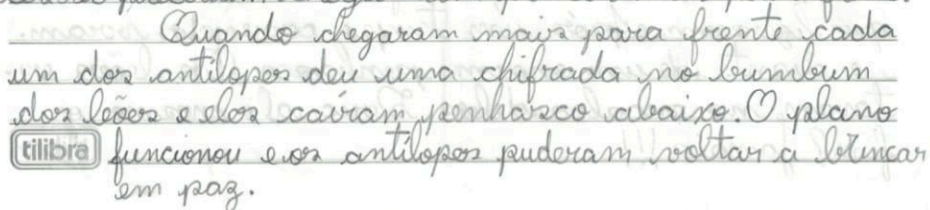 Quando chegaram mais para frente cada
um dos antilopes deu uma chifrada no bumbum
dos leões e eles caíram penhasco abaixo. O plano
tilibra funcionou e os antílopes puderam voltar a brincar
em paz.